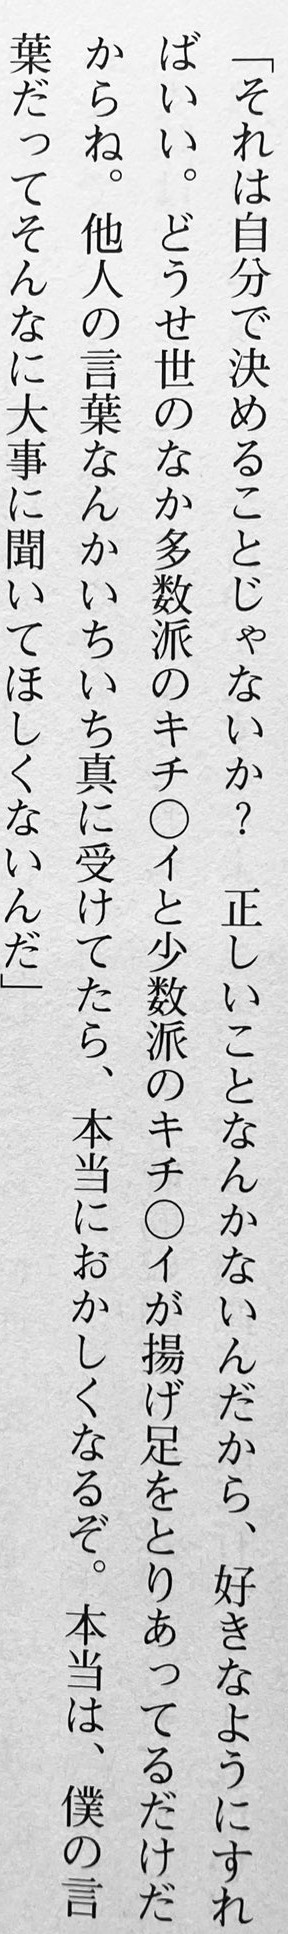 「それは自分で決めることじゃないか？　正しいことなんかないんだから、好きなようにすれ
ばいい。どうせ世のなか多数派のキチ〇イと少数派のキチ〇イが揚げ足をとりあってるだけだ
からね。他人の言葉なんかいちいち真に受けてたら、本当におかしくなるぞ。本当は、僕の言
葉だってそんなに大事に聞いてほしくないんだ」